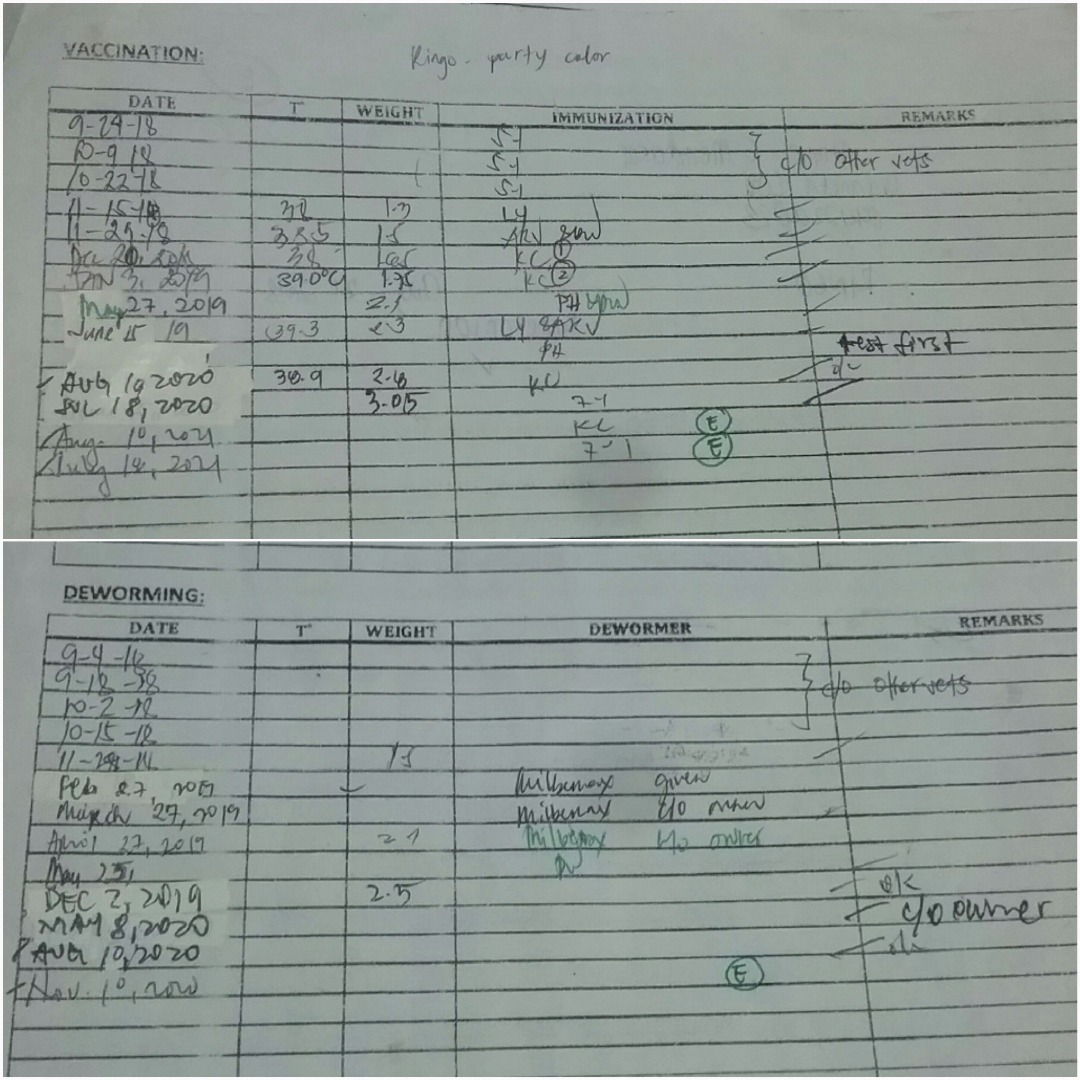 VACCINATION:
Kingo - party color
DATE T WEIGHT IMMUNIZATION REMARKS
9-24-18 5-1
10-9 18 5-1 c/o other vets
10-22-18 5-1
11-15-18 38 1.3 L4
11-29-18 38.5 1.5 ARV
Dec 20, 38 KC 1
3, 2019 39.0°C 1.75 KC 2
May 27, 2019 2.1 PH
June 15 19 39.3 2.3 L4 &ARV
PH test first
AUG 10 2020 38.9 2.8 KC ok
JUL 18, 2020 3.05 7-1
Aug. 10, 2021 KC E
July 18, 2021 7-1 E
DEWORMING:
DATE T° WEIGHT DEWORMER REMARKS
9-4-18
9-18-18 c/o other vets
10-2-18
10-15-18
11-29-18 1.5
Feb 27, 2019 Milbemax given
March 27, 2019 Milbemax c/o owner
April 27, 2019 2.1 Milbemax c/o owner
May 25,
DEC 2, 2019 2.5 ok
MAY 8, 2020 c/o owner
AUG 10, 2020 ok
Nov. 10, 2020 E